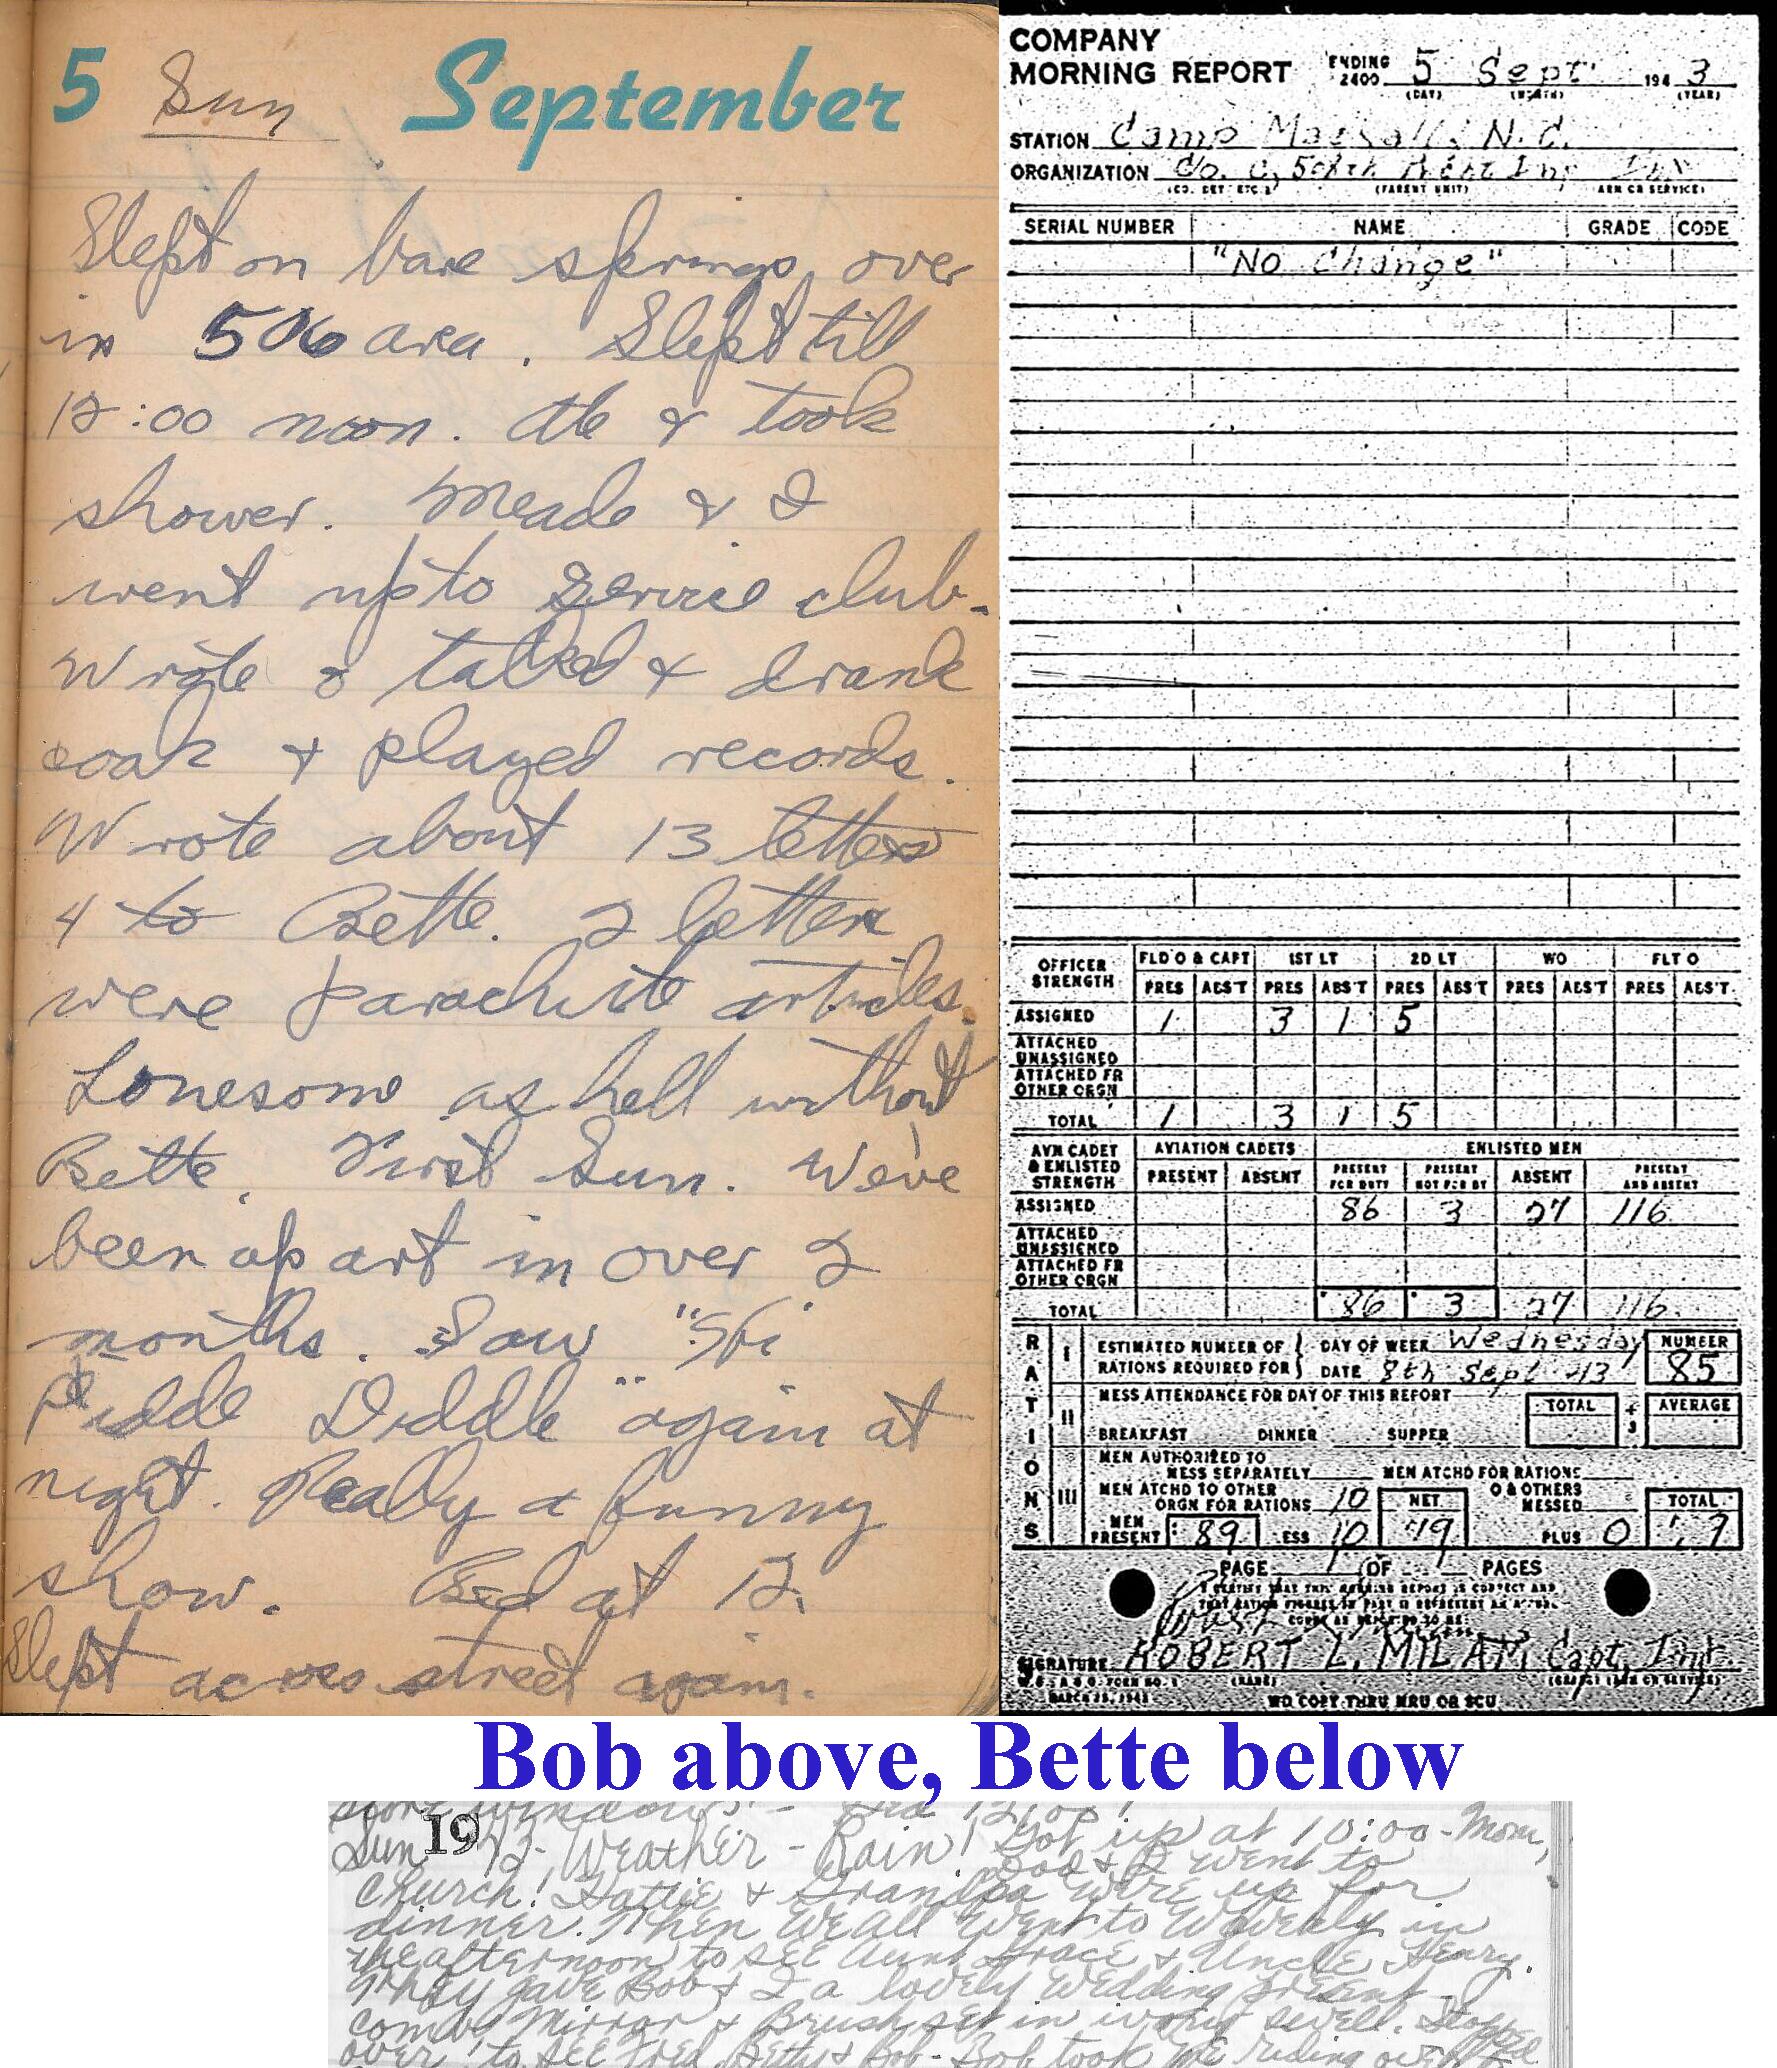 5 Sun September
Slept on bare springs over
in 506 area. Slept till
12:00 noon. Ate & took
shower. Meade & I
went up to Service club.
Wrote & talked & drank
coak & played records.
Wrote about 13 letters
4 to Bette. 2 letters
were parachute articles.
Lonesome as hell without
Bette. First Sun. We've
been apart in over 2
months. Saw "Shi
Diddle" again at
night. Really a funny
show. Bed at 12.
Slept across street again.
COMPANY
MORNING REPORT ENDING 2400 5 Sept 1943
(DAY) (MONTH) (YEAR)
STATION Camp Mackall, N.C.
ORGANIZATION Co. C, Inf
(CO. DET. ETC.) (PARENT UNIT) ARM OR SERVICE)
SERIAL NUMBER NAME GRADE CODE
"No Change"
OFFICER STRENGTH FLD O & CAPT 1ST LT 2D LT WO FLT O
PRES ABS'T PRES ABS'T PRES ABS'T PRES ABS'T PRES ABS'T
ASSIGNED 1 3 1 5
ATTACHED UNASSIGNED
ATTACHED FR OTHER ORGN
TOTAL 1 3 1 5
AVN CADET & ENLISTED STRENGTH AVIATION CADETS ENLISTED MEN
PRESENT ABSENT PRESENT FOR DUTY PRESENT NOT FOR DY ABSENT PRESENT AND ABSENT
ASSIGNED 86 3 27 116
ATTACHED UNASSIGNED
ATTACHED FR OTHER ORGN
TOTAL 86 3 27 116
RATIONS
I ESTIMATED NUMBER OF RATIONS REQUIRED FOR DAY OF WEEK Wednesday NUMBER
DATE 8th Sept 43 85
II MESS ATTENDANCE FOR DAY OF THIS REPORT TOTAL ÷ 3 AVERAGE
BREAKFAST DINNER SUPPER
III MEN AUTHORIZED TO MESS SEPARATELY MEN ATCHD FOR RATIONS
MEN ATCHD TO OTHER ORGN FOR RATIONS 10 NET O & OTHERS MESSED TOTAL
MEN PRESENT 89 LESS 10 79 PLUS 0 79
PAGE 1 OF PAGES
I CERTIFY THAT THIS MORNING REPORT IS CORRECT AND
SIGNATURE ROBERT L. MILAM Capt, Inf.
(NAME) (GRADE) (ARM OR SERVICE)
MARCH 25, 1943 WD COPY THRU MRU OR SCU
Bob above, Bette below
store windows! - Bed 12:00!
Sun 19 Weather - Rain! Got up at 10:00 - Mom,
Dad & I went to
church! Hattie & Grandpa were up for
dinner. Then we all went to Waverly in
the afternoon to see Aunt Grace & Uncle Henry.
They gave Bob & I a lovely wedding present -
comb, Mirror & Brush set in ivory, swell. Stopped
over to see Fred, Betty & Bob - Bob took me riding over